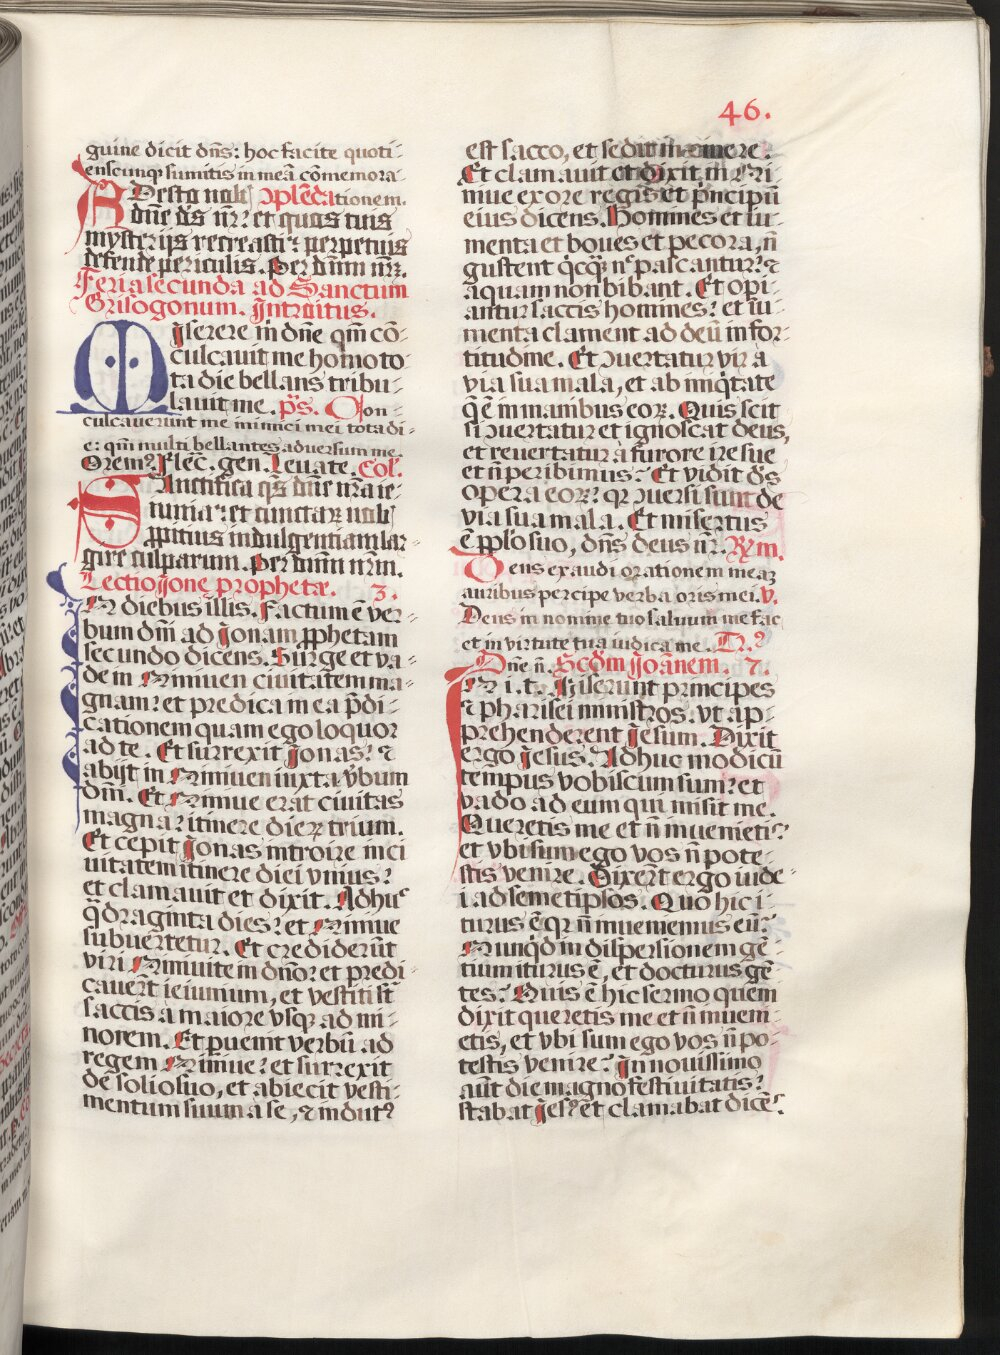 46.
guine dicit dñs: hoc facite quoti-
enscunqȝ sumitis in meã cõmemora
Adesto nobis Cõplẽdationem.
dñe ds nr̃? et quos tuis
mysterijs recreasti: perpetuis
defende periculis. Per dñm nrȝ.
Feria secunda ad Sanctum
Grisogonum. Introitus.
Miserere m̃ dñe qm̃ cõ-
culcavit me homo to-
ta die bellans tribu-
lavit me. p̃s. Con-
culcaverunt me inimici mei tota di-
e: qm̃ multi bellantes adversum me.
Orem?. Flec̃. gen. Levate. Col.
Sanctifica qs̃ dñe nr̃a ie-
iunia: et cunctaꝝ nob
ꝓpitius indulgentiam lar-
gire culparum. Per dñm nrm̃.
Lectio Jone prophetæ. 3.
In diebus illis. Factum ẽ ver-
bum dñi ad Jonam ꝓphetam
secundo dicens. Surge et va-
de in Niniven civitatem ma-
gnam: et predica in ea p̃di-
cationem quam ego loquor
ad te. Et surrexit Jonas: ⁊
abijt in Niniven iuxta v̾bum
dñi. Et Ninive erat civitas
magna: itinere dieꝝ trium.
Et cepit Jonas introire in ci
vitatem itinere diei unius:
et clamavit et dixit. Adhuc
q̃draginta dies: et Ninive
subvertetur. Et crediderũt
viri Ninivite in dño: et predi-
caver̃t ieiunium, et vestiti st̃
saccis a maiore usqȝ ad mi-
norem. Et pueint verbũ ad
regem Ninive: et surrexit
de solio suo, et abiecit vesti-
mentum suum a se, ⁊ indut?
est sacco, et sedit in cinere.
Et clamavit et dixit in Ni-
nive ex ore regis et p̃ncipũ
eius dicens. Homines et iu-
menta et boves et pecora, ñ
gustent q̃cqȝ nc̃ pascantur: ⁊
aquam non bibant. Et opi-
antur saccis homines: et iu-
menta clament ad deũ in for-
titudine. Et ↄvertatur vir a
via sua mala, et ab iniq̃tate
q̃ ẽ in manibus eoꝝ. Quis scit
si ↄvertatur et ignoscat deus,
et revertatur a furore ire sue
et ñ peribimus: Et vidit ds̃
opera eoꝝ: qꝛ ↄversi sunt de
via sua mala. Et misertus
ẽ ꝓplo suo, dñs deus nr̃. R̃m.
Deus exaudi orationem meaȝ
auribus percipe verba oris mei. v.
Deus in nomine tuo salvum me fac
et in virtute tua iudica me. Tr.?
Dñe ñ. Scdm̃ Joãnem. 7.
In i. t. Miserunt principes
⁊ pharisei ministros. ut ap-
prehenderent Jesum. Dixit
ergo Jesus. Adhuc modicũ
tempus vobiscum sum: et
vado ad eum qui misit me.
Queretis me et ñ invenietis:
et ubi sum ego vos ñ pote-
stis venire. Dixer̃t ergo iude-
i ad semetipsos. Quo hic i-
turus ẽ qꝛ ñ inveniemus eũ:
Nunqd̃ in dispersionem gẽ-
tium iturus ẽ, et docturus gẽ-
tes: Quis ẽ hic sermo quem
dixit queretis me et ñ inveni-
etis, et ubi sum ego vos ñ po-
testis venire: In novissimo
aũt die magno festivitatis:
stabat Jes? et clamabat dicẽs.